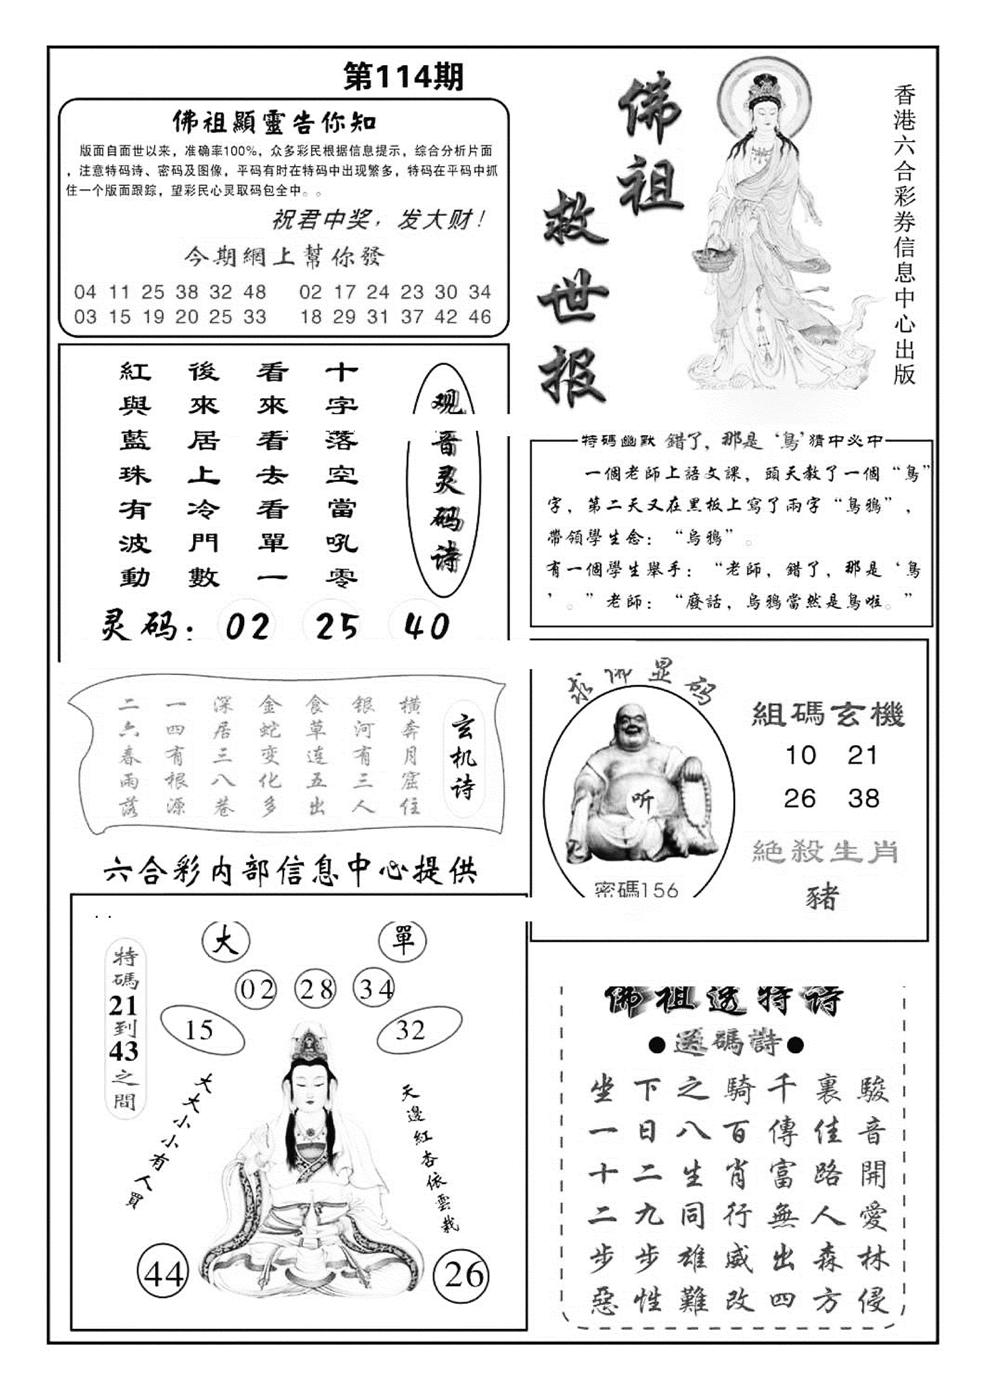 第114期
佛祖顯靈告你知
版面自面世以来，准确率100%，众多彩民根据信息提示，综合分析片面
，注意特码诗、密码及图像，平码有时在特码中出现繁多，特码在平码中抓
住一个版面跟踪，望彩民心灵取码包全中。。
祝君中奖，发大财！
今期網上幫你發
04 11 25 38 32 48 02 17 24 23 30 34
03 15 19 20 25 33 18 29 31 37 42 46
佛祖
救世报
香港六合彩券信息中心出版
观音灵码诗
十字落空當吼零
看來看去看單一
後來居上冷門數
紅與藍珠有波動
灵码：02 25 40
特碼幽默 錯了，那是‘鳥’猜中必中
一個老師上語文課，頭天教了一個“鳥”
字，第二天又在黑板上寫了兩字“烏鴉”，
帶領學生念：“烏鴉”。
有一個學生舉手：“老師，錯了，那是‘鳥
’。”老師：“廢話，烏鴉當然是鳥啦。”
玄机诗
横奔月窟住
银河有三人
食草连五出
金蛇变化多
深居三八巷
一四有根源
二六春雨落
六合彩内部信息中心提供
求佛显码
听
密碼156
組碼玄機
10 21
26 38
絕殺生肖
豬
. .
大 單
02 28 34
15 32
特碼21到43之間
大大小小有人買
天邊紅杏依雲栽
44 26
佛祖送特诗
●送碼詩●
坐下之騎千裏駿
一日八百傳佳音
十二生肖富路開
二九同行無人愛
步步雄威出森林
惡性難改四方侵